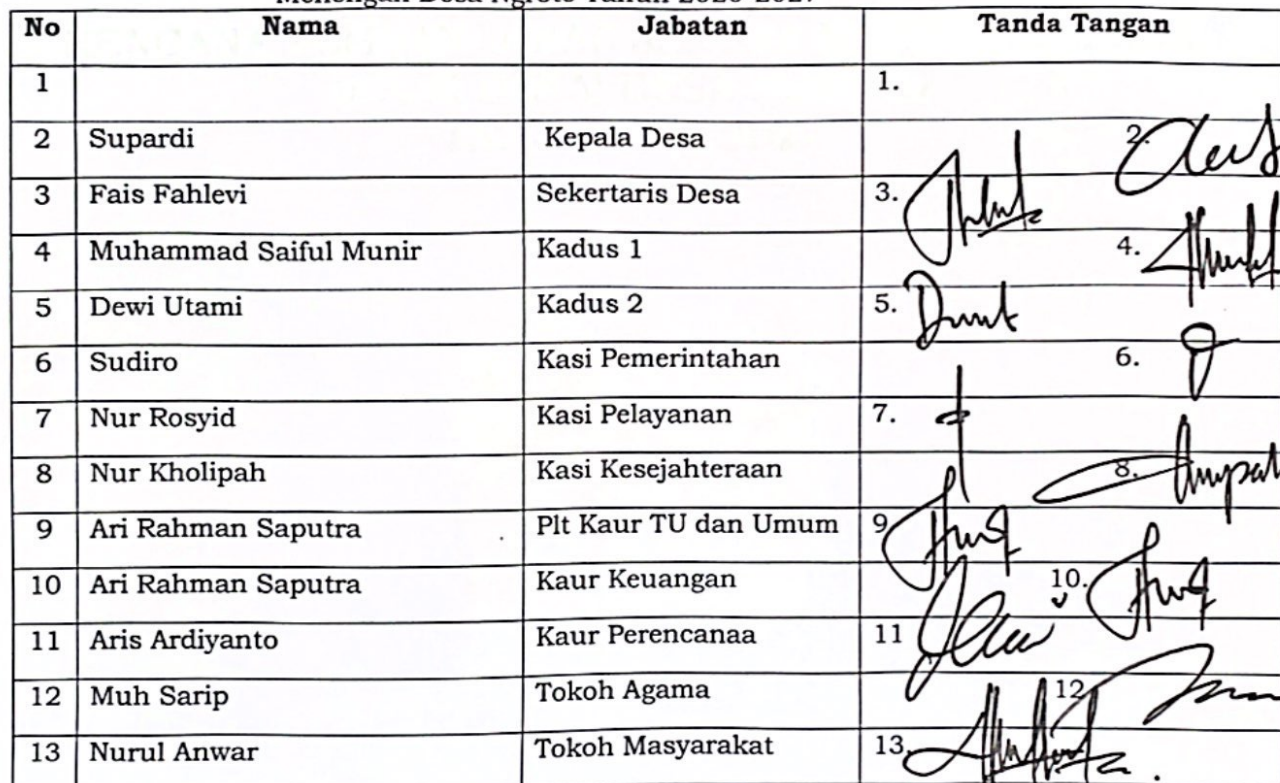 No Nama Jabatan Tanda Tangan
1 1.
2 Supardi Kepala Desa 2.
3 Fais Fahlevi Sekertaris Desa 3.
4 Muhammad Saiful Munir Kadus 1 4.
5 Dewi Utami Kadus 2 5.
6 Sudiro Kasi Pemerintahan 6.
7 Nur Rosyid Kasi Pelayanan 7.
8 Nur Kholipah Kasi Kesejahteraan 8.
9 Ari Rahman Saputra Plt Kaur TU dan Umum 9
10 Ari Rahman Saputra Kaur Keuangan 10.
11 Aris Ardiyanto Kaur Perencanaa 11
12 Muh Sarip Tokoh Agama 12
13 Nurul Anwar Tokoh Masyarakat 13.